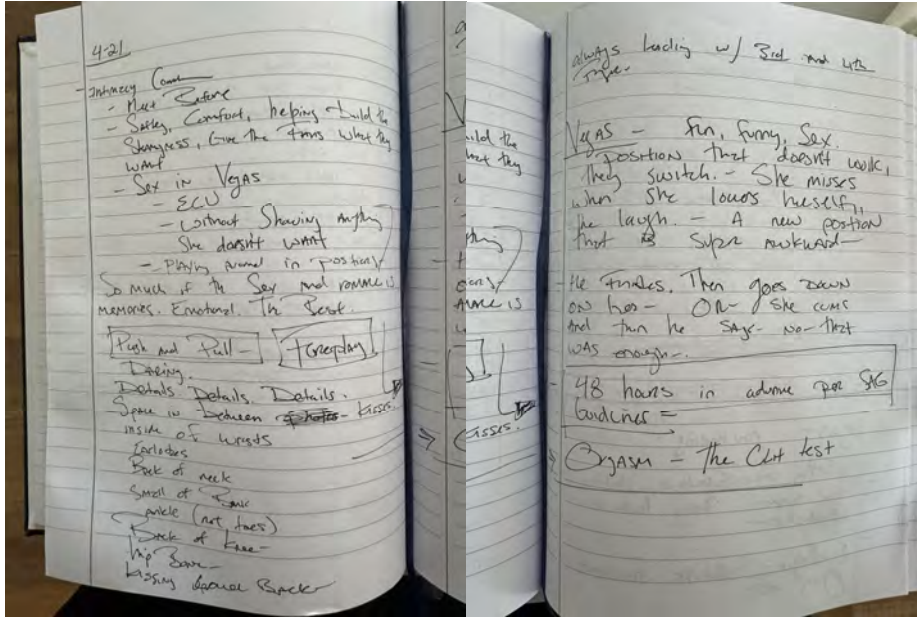 4-21
- Intimacy Coord
- Meet Before
- Safety, Comfort, helping build the
Steamyness, Give the Fans what they
want
- Sex in Vegas
- ECU
- without Showing Anything
She doesn't want
- Playing in positions
So much of the Sex and romance is
memories. Emotional. The Best.
Push and Pull - Foreplay
Daring.
Details Details. Details.
Space in between kisses.
inside of wrists
Earlobes
Back of neck
Small of Back
ankle (not toes)
Back of Knee -
hip Bone -
kissing Back
always leading w/ 3rd and 4th
Type -
Vegas - fun, funny, Sex.
position that doesn't work,
they switch. - She misses
when she lowers herself,
he laugh. - A new postion
that is Super Awkward -
He Finishes. Then goes down
on her - OR - She cums
And then he says - No - that
was enough -.
- 48 hours in advance per SAG
Guidlines =
Orgasm - The test